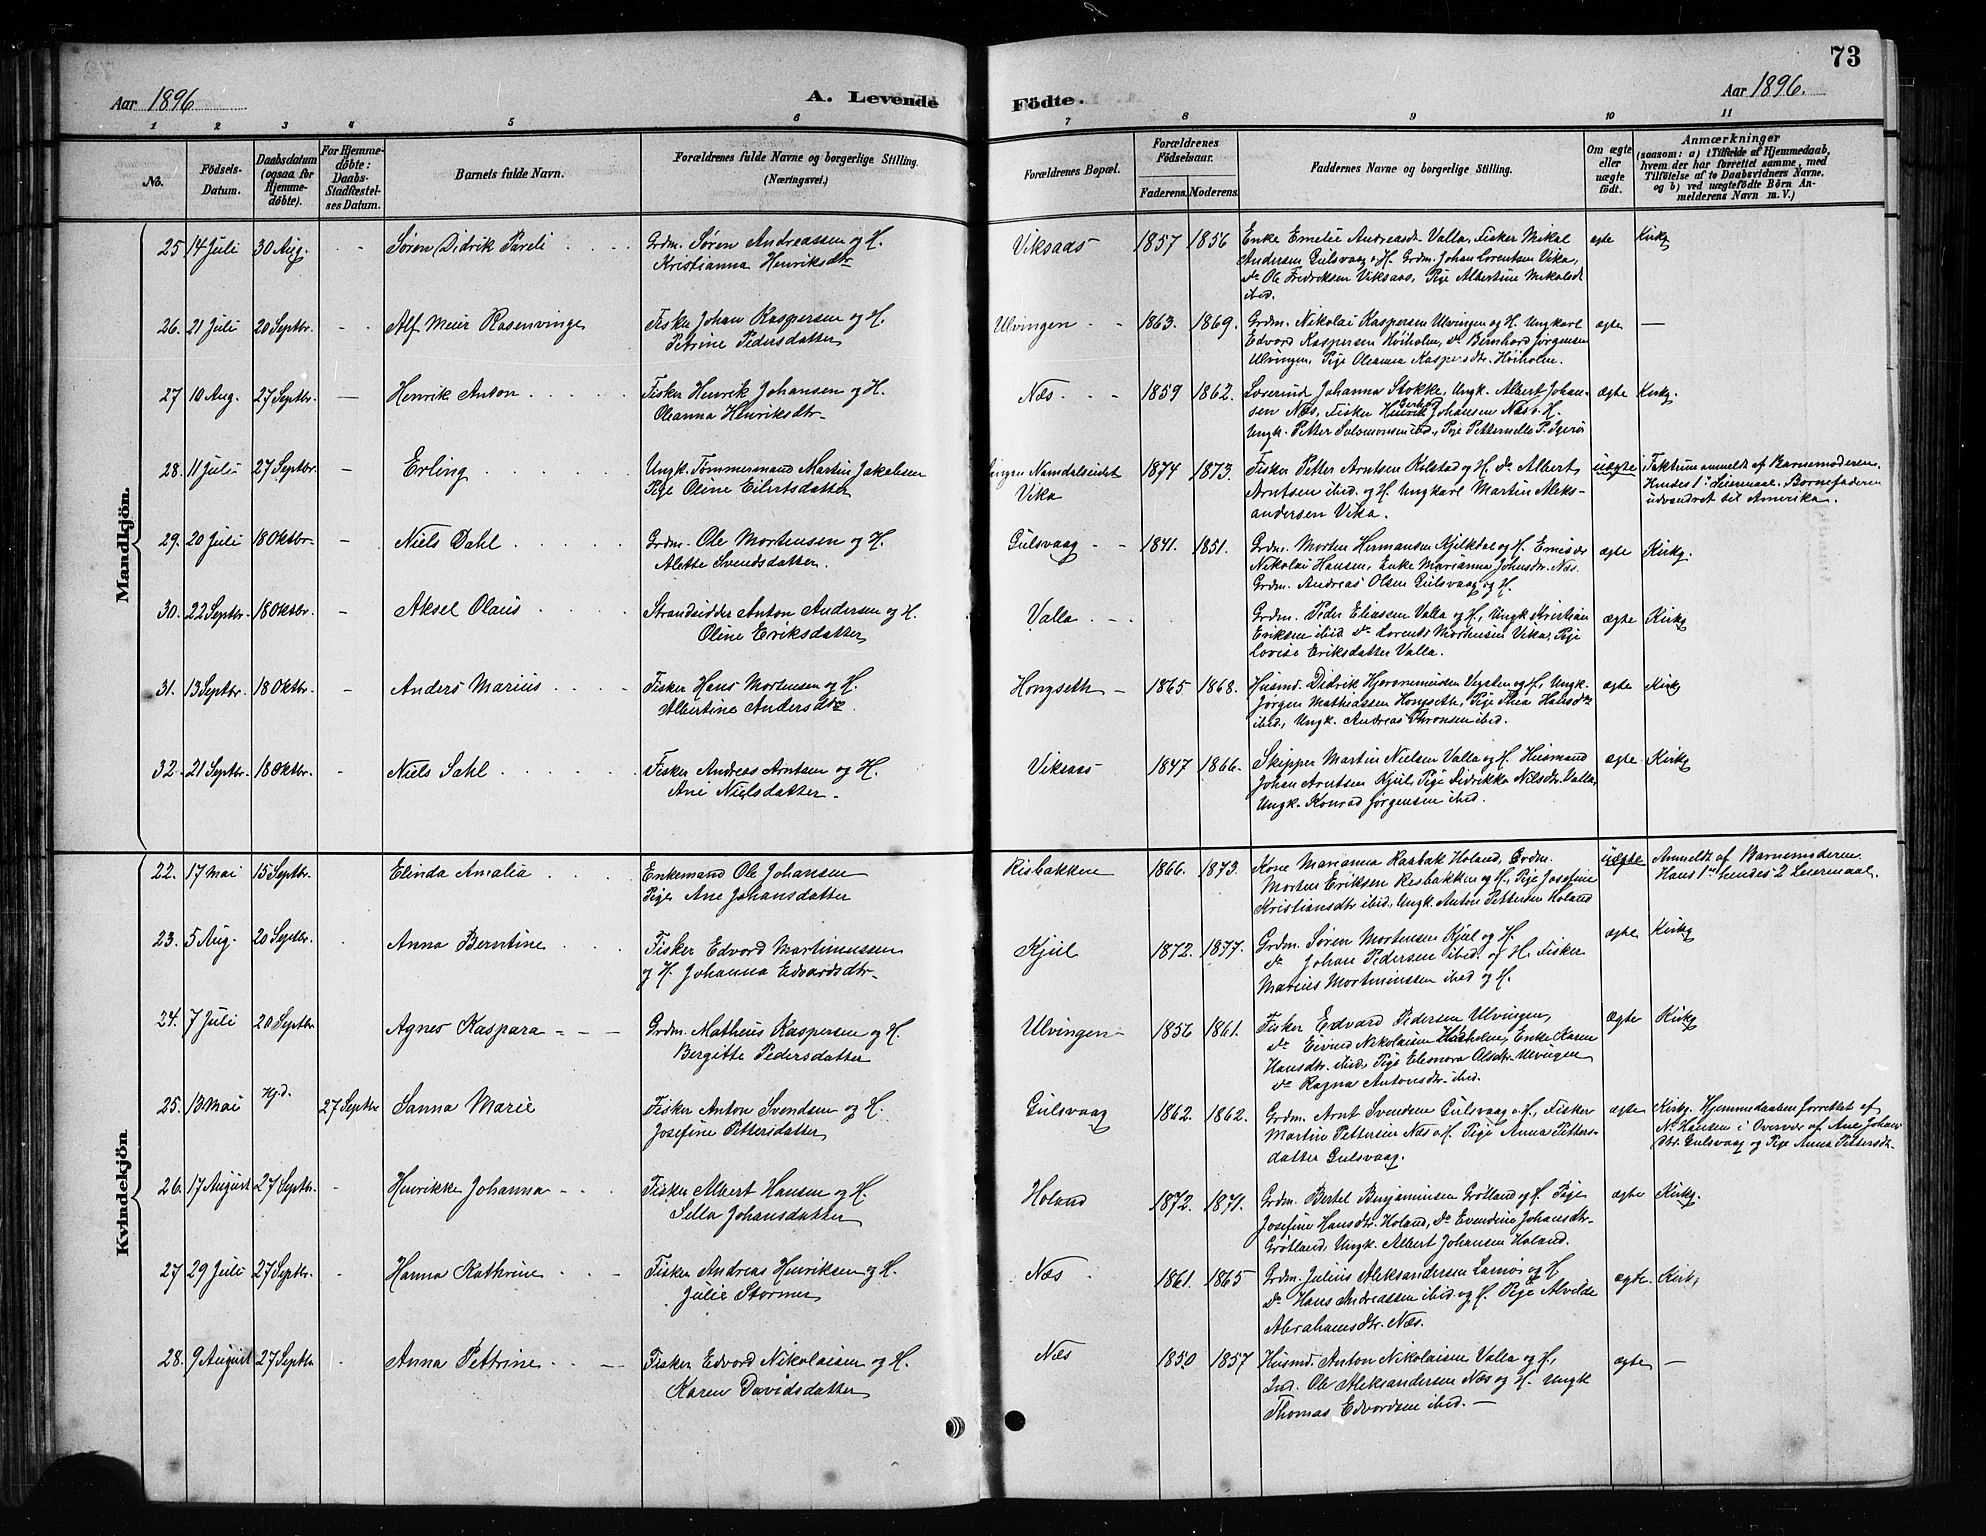 73
Aar 1896.
A. Levende
Födte.
Aar 1896.
1 2 3 4 5 6 7 8 9 10 11
No.
Födsels-
Datum.
Daabsdatum
(ogsaa for
Hjemme-
døbte).
For Hjemme-
døbte:
Daabs-
Stadfæstel-
ses Datum.
Barnets fulde Navn.
Forældrenes fulde Navne og borgerlige Stilling.
(Næringsvei.)
Forældrenes Bopæl.
Forældrenes
Fødselsaar.
Faderens. Moderens.
Faddernes Navne og borgerlige Stilling.
Om ægte
eller
uægte
født.
Anmærkninger
(saasom: a) i Tilfælde af Hjemmedaab,
hvem der har forrettet samme, med
Tilføielse af to Daabsvidners Navne,
og b) ved uægtefödte Börn An-
melderens Navn m. V.)
Mandkjön.
25 14 Juli 30 Aug. - - Søren Didrik Pareli Grdm. Søren Andreassen og H.
Kristianna Henriksdtr
Viksaas 1857 1856 Enke Emelie Andreasdr Valla, Fisker Mikal
Andersen Gulsvaag o H. Grdm. Johan Lorentsen Vika,
do Ole Fredriksen Viksaas, Pige Albertine Mikalsdt
ibid.
ægte Kirkg
26. 21 Juli 20 Septbr. - - Alf Meier Rosenvinge Fisker Johan Kaspersen og H.
Petrine Pedersdatter
Ulvingen 1863. 1869. Grdm. Nikolai Kaspersen Ulvingen og H. Ungkarl
Edvard Kaspersen Høiholm, do Bernhard Jørgensen
Ulvingen, Pige Oleanna Kaspersdtr. Høiholm.
ægte —
27 10 Aug. 27 Septbr. — Henrik Anton Fisker Henrik Johansen og H.
Oleanna Henriksdtr
Næs 1859 1862. Lærerinde Johanna Stokke, Ungk. Albert Johan-
sen Næs, Fisker Henrik Johansen Næs o H.
Ungk. Petter Salomonsen ibid., Pige Petternelle P.
ægte Kirkg.
28. 11 Juli 27 Septbr - Erling Ungk. Tømmermand Martin Jakobsen
Pige Oline Eilertsdatter
Namdalseidet
Vika
1874 1873. Fisker Petter Arntsen Kolstad og H. do Albert
Arntsen ibid. og H. Ungkarl Martin Aleks-
andersen Vika.
uægte Faktum anmeldt af Barnemoderen.
Hendes 1ste Leiermaal. Barnefaderen
udvandret til Amerika.
29. 20 Juli 18 Oktbr. - Niels Dahl Grdm. Ole Mortensen og H.
Alette Svendsdatter.
Gulsvaag 1841. 1851. Grdm. Morten Hermansen Kjilkdal og H.
Nikolai Hansen, Enke Marianna Johnsdr. Næs.
Grdm. Andreas Olsen Gulsvaag og H.
ægte Kirkg.
30. 22 Septbr. 18 Oktbr. - Aksel Olaus Strandsidder Anton Andersen og H.
Oline Eriksdatter
Valla Grdm. Peder Eliassen Valla og H., Ungk Kristian
Eriksen ibid do Lorents Mortensen Vika, Pige
Lovise Eriksdatter Valla.
ægte Kirkg
31. 13 Septbr. 18 Oktbr. - Anders Marius Fisker Hans Mortensen og H.
Albertine Andersdtr.
Hongseth 1865 1868. Husmd. Didrik Hjeronimusen og H., Ungk.
Jørgen Mathiassen Hongseth, Pige Thea Hansdtr
ibid, Ungk. Andreas Thronsen ibid.
ægte Kirkg
32. 21 Septbr. 18 Oktbr. - Niels Sahl Fisker Andreas Arntsen og H.
Ane Nielsdatter.
Viksaas 1847 1866. Skipper Martin Nielsen Valla og H. Husmand
Johan Arntsen Kjul, Pige Didrikka Nilsdtr. Valla,
Ungk. Konrad Jørgensen ibid.
ægte Kirkg
Kvindekjön
22. 17 Mai 15 Septbr. Elinda Amalia Enkemand Ole Johansen
Pige Ane Johansdatter
Risbakken 1866. 1873. Kone Marianna Raabak Holand, Grdm.
Morten Eriksen Risbakken og H., Pige Josefine
Kristiansdtr ibid., Ungk. Anton Pettersen Holand
uægte Anmeldt af Barnemoderen.
Hans 1ste hendes 2 Leiermaal.
23. 5 Aug. 20 Septbr. Anna Berntine Fisker Edvord Martinussen
og H. Johanna Edvardsdtr.
Kjul 1872. 1877. Grdm. Søren Mortensen Kjul og H.
do Johan Pedersen ibid. og H. Fisker
Marius Mortinussen ibid og H.
ægte Kirkg
24. 7 Juli 20 Septbr Agnes Kaspara Grdm. Matheus Kaspersen og H.
Bergitte Pedersdatter
Ulvingen 1856 1861. Fisker Edvard Pedersen Ulvingen,
do Eivind Nikolaisen Høiholm, Enke Karen
Hansdtr. ibid, Pige Eleonora Olsdtr. Ulvingen
do Ragna Antonsdtr. ibid.
Ægte Kirkg
25. 13 Mai Hjd. 27 Septbr Sanna Marie Fisker Anton Svendsen og H.
Josefine Pettersdatter
Gulsvaag 1862. 1862. Grdm. Arnt Svendsen Gulsvaag o H., Fisker
Martin Pettersen Næs o H. Pige Anna Petters-
datter Gulsvaag.
ægte Kirkg. Hjemmedaaben forrettet af
N. Hansen i Overvær af Ane Johans
dtr. Gulsvaag og Pige Anna Pettersdt.
26. 17 August 27 Septbr. - Henrikke Johanna Fisker Albert Hansen og H.
Sella Johansdatter
Holand 1872. 1871. Grdm. Bertel Benjaminsen Grøtland og H. Pige
Josefine Hansdtr. Holand, do Evendine Johansdtr.
Grøtland, Ungk. Albert Johansen Holand.
ægte Kirkg.
27 29 Juli 27 Septbr. - Hanna Kathrine Fisker Andreas Henriksen og H.
Julie Stormer
Næs 1861. 1865 Grdm. Julius Aleksandersen Lamo og H
do Hans Andreassen ibid og H. Pige Alvilde
Abrahamsdtr. Næs.
ægte Kirkg
28. 9 August 27 Septbr Anna Pettrine Fisker Edvord Nikolaisen og H.
Karen Davidsdatter
Næs 1850 1857 Husmd. Anton Nikolaisen Valla og H,
Ind. Ole Aleksandersen Næs og H. Ungk
Thomas Edvordsen ibid. —
ægte —